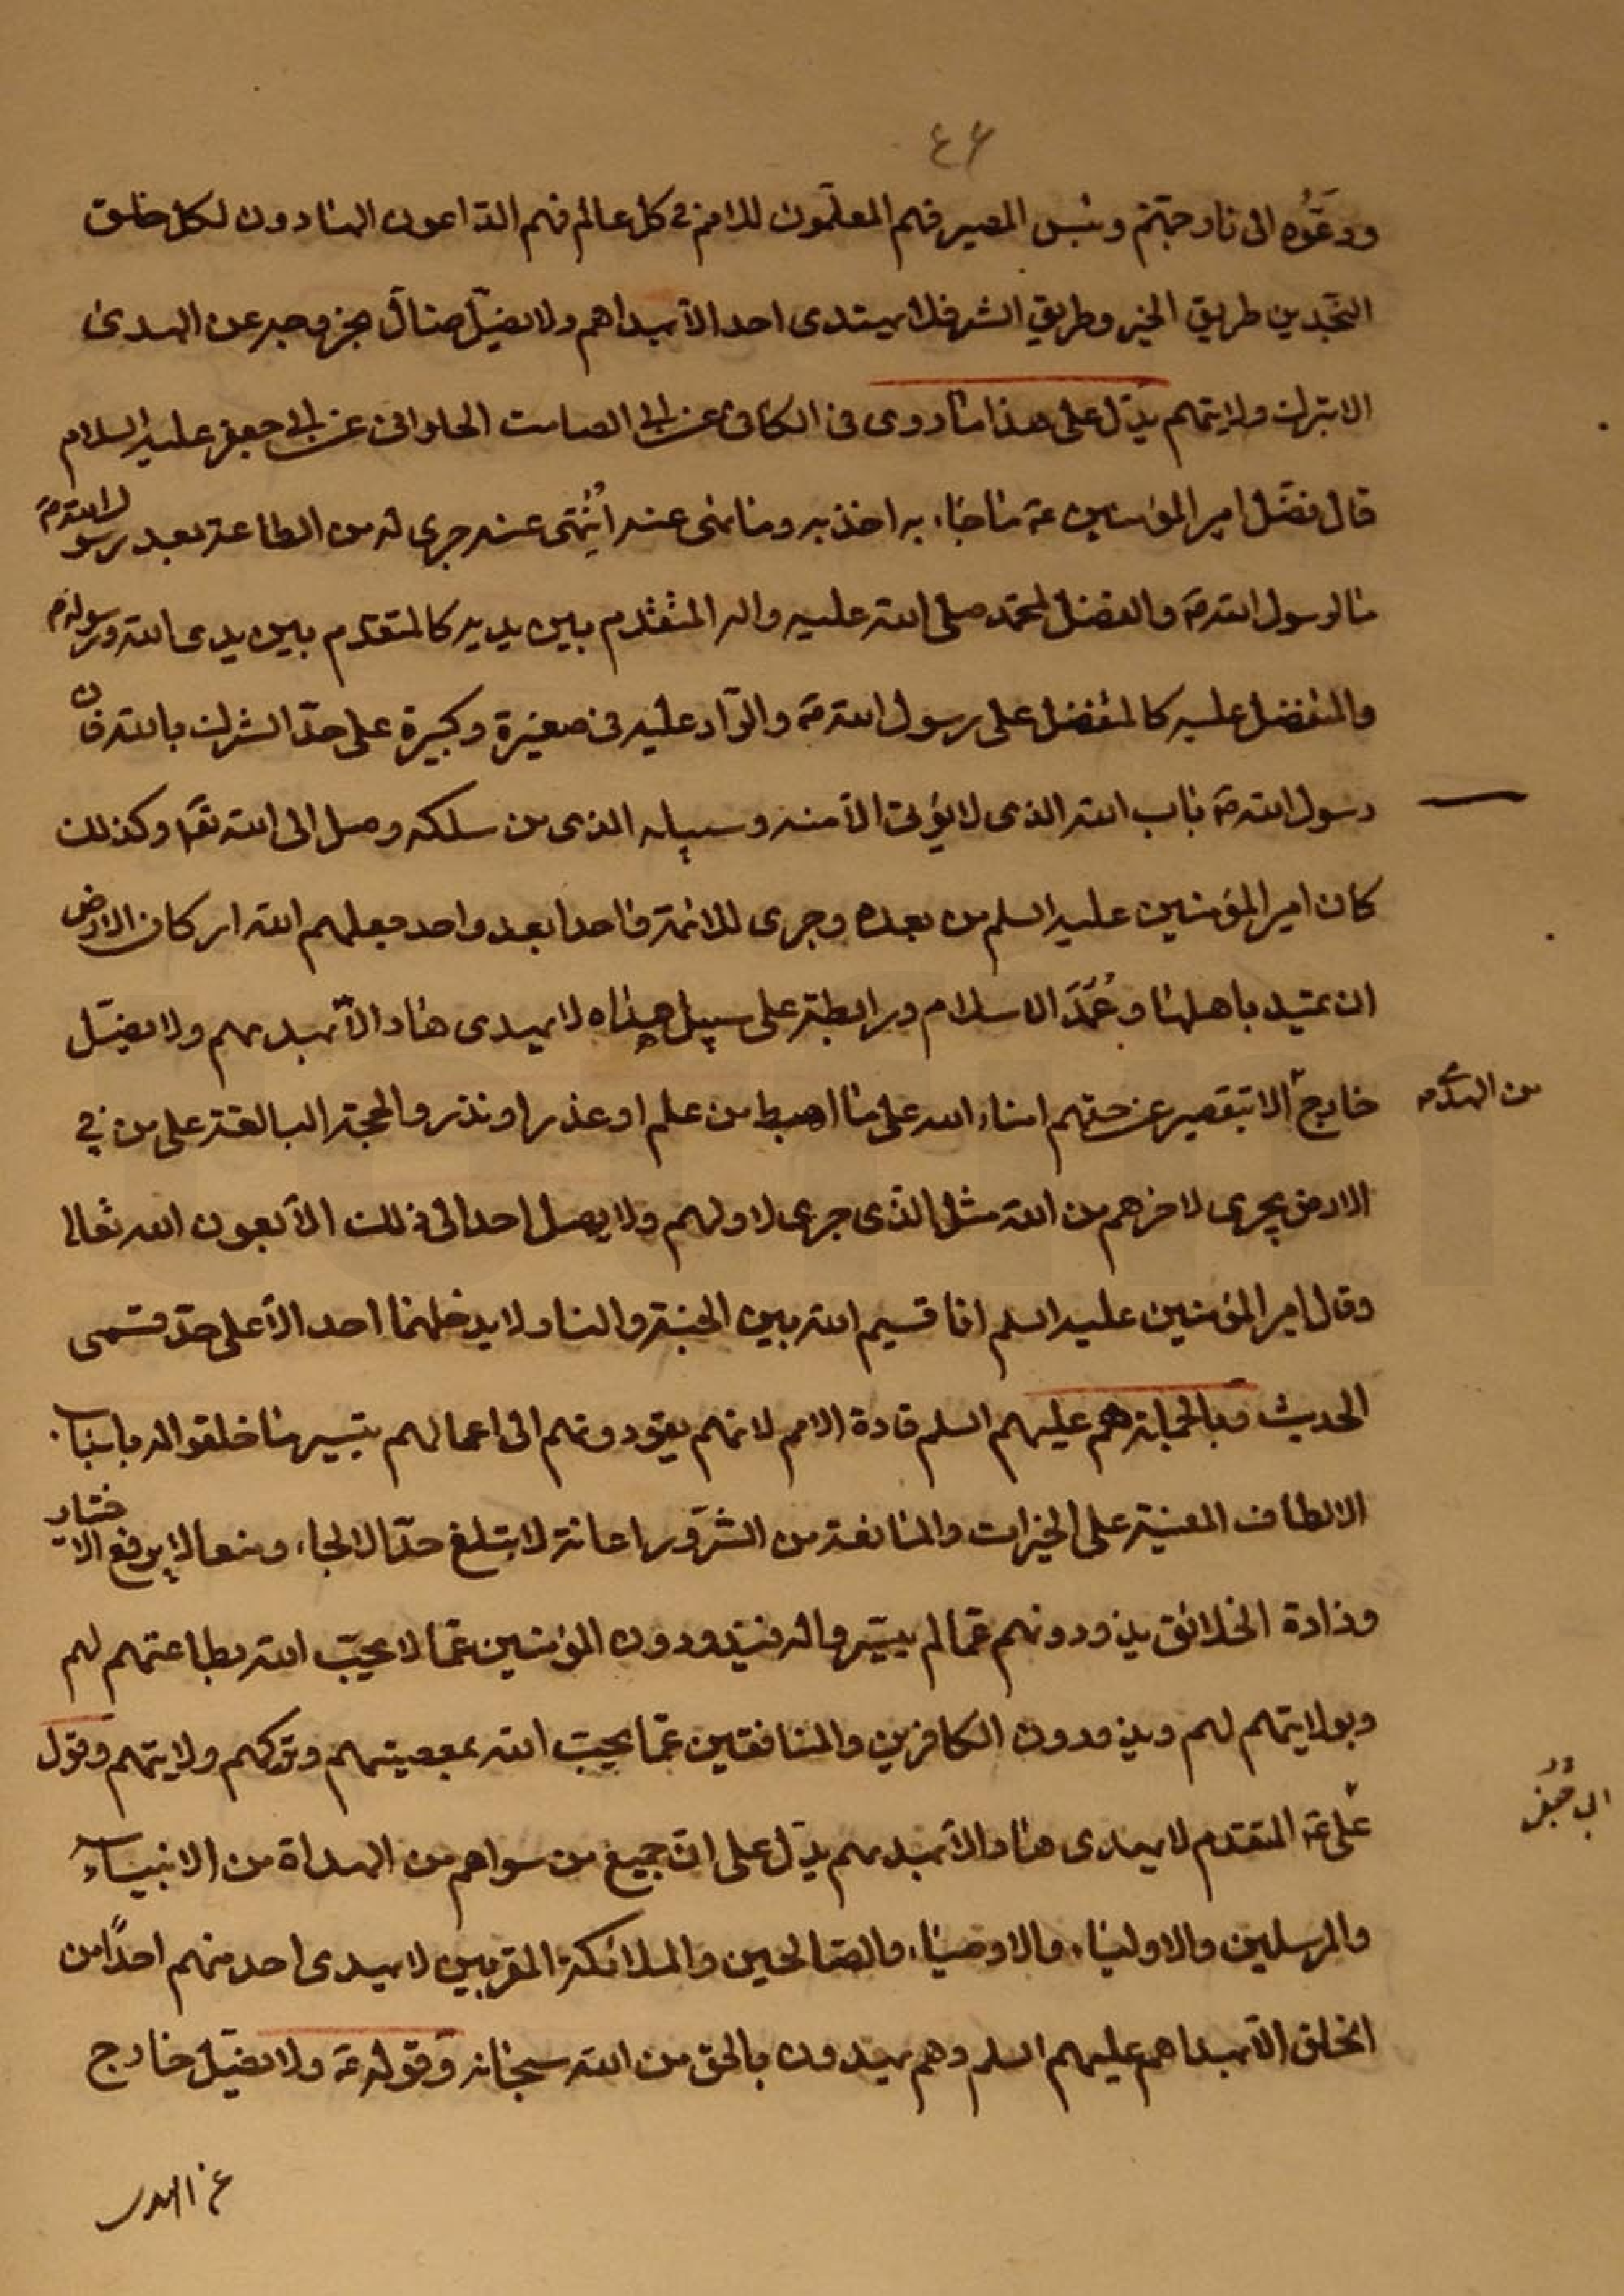 ٤٦
ودعّوه الى نار جهنم وبئس المصير فهم المعلّمون للامم في كل عالم فهم الدّاعون الهادون لكل خلق
النجدين طريق الخير وطريق الشر فلا يهتدى احد الّا بهداهم ولا يضلّ ضالّ عن الهدى
الا بترك ولايتهم يدّل على هذا ما روى فى الكافى عن ابى الصامت الحلوانى عن ابى جعفر عليه السلام
قال فضّل امير المؤمنين ع ما جاء به اخذ به وما نهى عنه انتهى عنه جرى له من الطاعة بعد رسول الله ص
ما لرسول الله ص والفضل لمحمد صلى الله عليه واله المتقدم بين يديه كالمتقدم بين يدى الله ورسوله
والمتفضل عليه كالمتفضل على رسول الله ص والرّاد عليه فى صغيرة وكبيرة على حدّ الشرك بالله فان
رسول الله ص باب الله الذى لا يؤتى الّا منه وسبيله الذى من سلكه وصل الى الله تعا وكذلك
كان امير المؤمنين عليه السلم من بعده وجرى للائمة واحدا بعد واحد جعلهم الله اركان الارض
ان تميد باهلها وعُمَدَ الاسلام ورابطة على سبيل هداه لا يهدى هاد الّا بهديهم ولا يضلّ
خارج الا بتقصير عن حقهم امناء الله على ما اهبط من علم او عذر او نذر والحجة البالغة على من في
من الهدى
الارض يجرى لاخرهم من الله مثل الذى جرى لاولهم ولا يصل احد الى ذلك الّا بعون الله تعالى
وقال امير المؤمنين عليه السلم انا قسيم الله بين الجنة والنار لا يدخلهما احد الّا على حدّ قسمى
الحديث وبالجملة هم عليهم السلم قادة الامم لانهم يقودونهم الى اعمالهم بتيسير ما خلقوا له باسباب
الالطاف المعينة على الخيرات والمانعة من الشرور اعانة لا تبلغ حدّ الالجاء ومنعا لا يرفع الاختيار
وذادة الخلائق يذودونهم عمّا لم ييسّروا له فيذودون المؤمنين عمّا لا يحبّ الله بطاعتهم لهم
وبولايتهم لهم ويذودون الكافرين والمنافقين عمّا يحبّ الله بمعصيتهم وتركهم ولايتهم وقول
علي ع المتقدم لا يهدى هاد الّا بهديهم يدّل على انّ جميع من سواهم من الهداة من الانبياء
والمرسلين والاولياء والاوصياء والصالحين والملائكة المقربين لا يهدى احد منهم احدًا من
الخلق الّا بهداهم عليهم السلم وهم يهدون بالحق من الله سبحانه وقوله ع ولا يضلّ خارج
عن الهدى